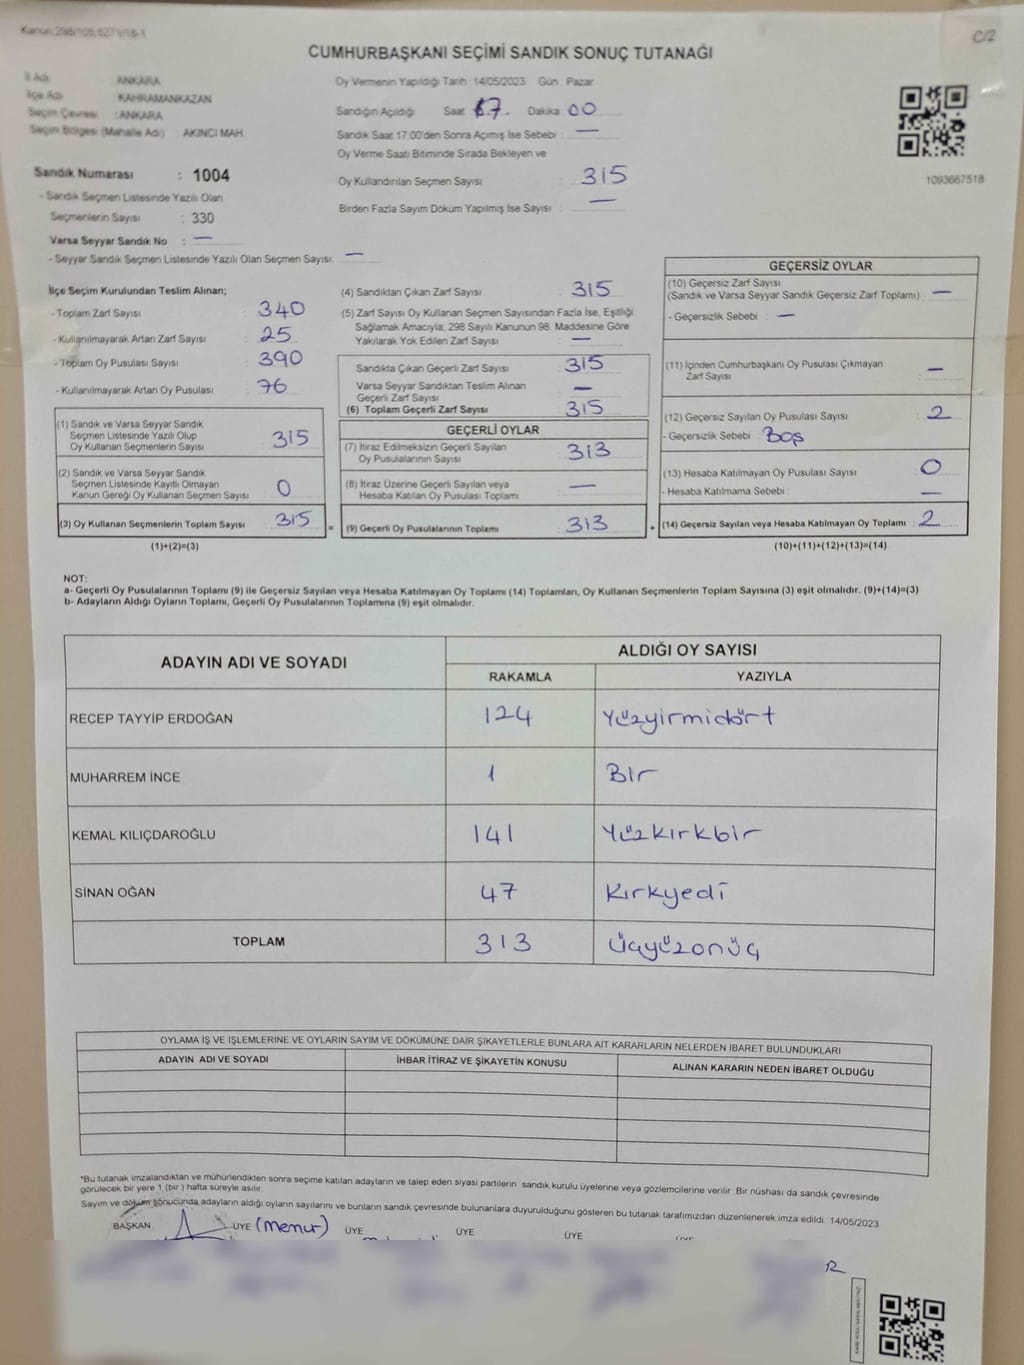 Kanun:298/105,6271/18-1
C/2
CUMHURBAŞKANI SEÇİMİ SANDIK SONUÇ TUTANAĞI
İl Adı : ANKARA
İlçe Adı : KAHRAMANKAZAN
Seçim Çevresi : ANKARA
Seçim Bölgesi (Mahalle Adı) : AKINCI MAH.
Sandık Numarası : 1004
- Sandık Seçmen Listesinde Yazılı Olan
Seçmenlerin Sayısı : 330
Varsa Seyyar Sandık No : —
- Seyyar Sandık Seçmen Listesinde Yazılı Olan Seçmen Sayısı: —
Oy Vermenin Yapıldığı Tarih :14/05/2023 Gün : Pazar
Sandığın Açıldığı Saat 17. Dakika 00
Sandık Saat 17:00'den Sonra Açılmış İse Sebebi : —
Oy Verme Saati Bitiminde Sırada Bekleyen ve
Oy Kullandırılan Seçmen Sayısı : 315
Birden Fazla Sayım Döküm Yapılmış İse Sayısı : —
1093667518
İlçe Seçim Kurulundan Teslim Alınan;
- Toplam Zarf Sayısı : 340
- Kullanılmayarak Artan Zarf Sayısı : 25
- Toplam Oy Pusulası Sayısı : 390
- Kullanılmayarak Artan Oy Pusulası : 76
(1) Sandık ve Varsa Seyyar Sandık
Seçmen Listesinde Yazılı Olup
Oy Kullanan Seçmenlerin Sayısı : 315
(2) Sandık ve Varsa Seyyar Sandık
Seçmen Listesinde Kayıtlı Olmayan
Kanun Gereği Oy Kullanan Seçmen Sayısı : 0
(3) Oy Kullanan Seçmenlerin Toplam Sayısı : 315 =
(1)+(2)=(3)
(4) Sandıktan Çıkan Zarf Sayısı : 315
(5) Zarf Sayısı Oy Kullanan Seçmen Sayısından Fazla İse, Eşitliği
Sağlamak Amacıyla; 298 Sayılı Kanunun 98. Maddesine Göre
Yakılarak Yok Edilen Zarf Sayısı : —
Sandıkta Çıkan Geçerli Zarf Sayısı : 315
Varsa Seyyar Sandıktan Teslim Alınan
Geçerli Zarf Sayısı : —
(6) Toplam Geçerli Zarf Sayısı : 315
GEÇERLİ OYLAR
(7) İtiraz Edilmeksizin Geçerli Sayılan
Oy Pusulalarının Sayısı : 313
(8) İtiraz Üzerine Geçerli Sayılan veya
Hesaba Katılan Oy Pusulası Toplamı : —
(9) Geçerli Oy Pusulalarının Toplamı : 313 +
GEÇERSİZ OYLAR
(10) Geçersiz Zarf Sayısı
(Sandık ve Varsa Seyyar Sandık Geçersiz Zarf Toplamı) : —
- Geçersizlik Sebebi : —
(11) İçinden Cumhurbaşkanı Oy Pusulası Çıkmayan
Zarf Sayısı : —
(12) Geçersiz Sayılan Oy Pusulası Sayısı : 2
- Geçersizlik Sebebi : Boş
(13) Hesaba Katılmayan Oy Pusulası Sayısı : 0
- Hesaba Katılmama Sebebi : —
(14) Geçersiz Sayılan veya Hesaba Katılmayan Oy Toplamı : 2
(10)+(11)+(12)+(13)=(14)
NOT:
a- Geçerli Oy Pusulalarının Toplamı (9) ile Geçersiz Sayılan veya Hesaba Katılmayan Oy Toplamı (14) Toplamları, Oy Kullanan Seçmenlerin Toplam Sayısına (3) eşit olmalıdır. (9)+(14)=(3)
b- Adayların Aldığı Oyların Toplamı, Geçerli Oy Pusulalarının Toplamına (9) eşit olmalıdır.
ADAYIN ADI VE SOYADI ALDIĞI OY SAYISI
RAKAMLA YAZIYLA
RECEP TAYYİP ERDOĞAN 124 Yüzyirmidört
MUHARREM İNCE 1 Bir
KEMAL KILIÇDAROĞLU 141 Yüzkırkbir
SİNAN OĞAN 47 Kırkyedi
TOPLAM 313 Üçyüzonüç
OYLAMA İŞ VE İŞLEMLERİNE VE OYLARIN SAYIM VE DÖKÜMÜNE DAİR ŞİKAYETLERLE BUNLARA AİT KARARLARIN NELERDEN İBARET BULUNDUKLARI
ADAYIN ADI VE SOYADI İHBAR İTİRAZ VE ŞİKAYETİN KONUSU ALINAN KARARIN NEDEN İBARET OLDUĞU
*Bu tutanak imzalandıktan ve mühürlendikten sonra seçime katılan adayların ve talep eden siyasi partilerin sandık kurulu üyelerine veya gözlemcilerine verilir .Bir nüshası da sandık çevresinde
görülecek bir yere 1 (bir ) hafta süreyle asılır.
Sayım ve döküm sonucunda adayların aldığı oyların sayılarını ve bunların sandık çevresinde bulunanlara duyurulduğunu gösteren bu tutanak tarafımızdan düzenlenerek imza edildi. 14/05/2023
BAŞKAN ÜYE (memur) ÜYE ÜYE ÜYE